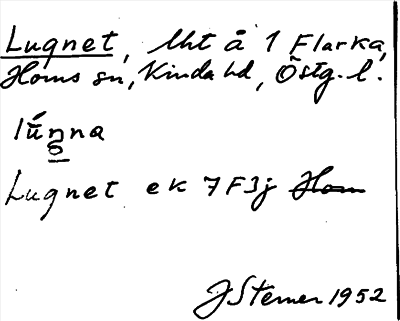 Lugnet, lht å 1 Flarka,
Horns sn, Kinda hd, Östg. l.
Lugnet ek 7F3j Horn
J Sterner 1952